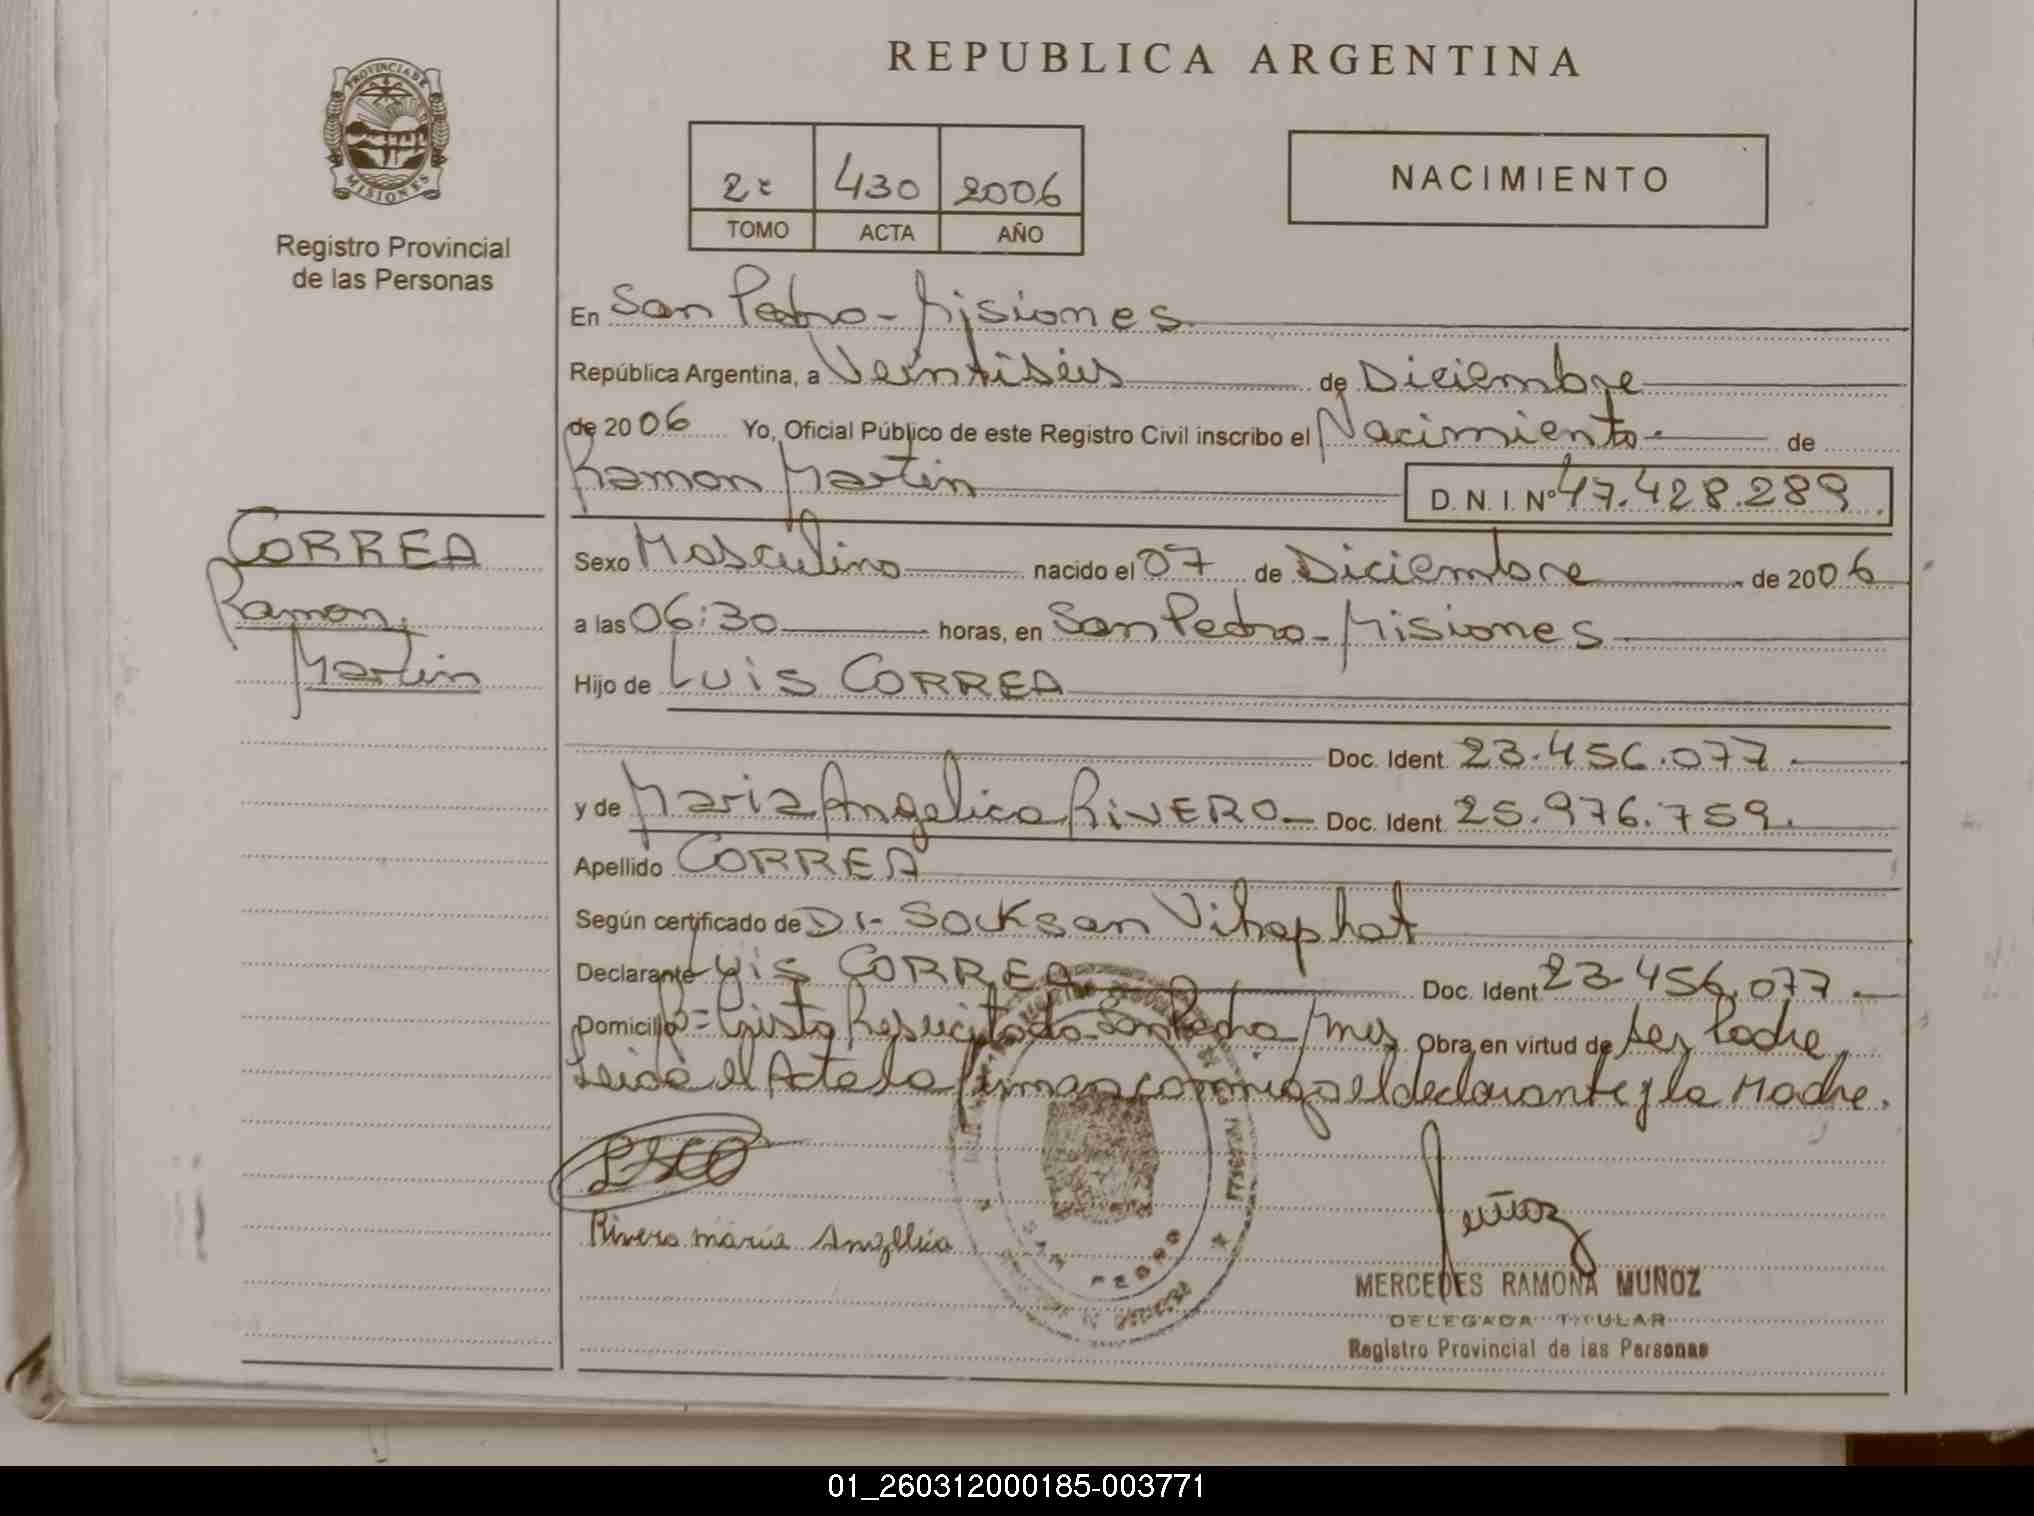 REPUBLICA ARGENTINA
PROVINCIA DE
MISIONES
Registro Provincial
de las Personas
2º 430 2006
TOMO ACTA AÑO
NACIMIENTO
En San Pedro - Misiones
República Argentina, a Veintiséis de Diciembre
de 2006 Yo, Oficial Público de este Registro Civil inscribo el Nacimiento de
Ramon Martin D. N. I. Nº 47.428.289.
CORREA
Ramon
Martin
Sexo Masculino nacido el 07 de Diciembre de 2006
a las 06:30 horas, en San Pedro - Misiones
Hijo de Luis CORREA
Doc. Ident. 23.456.077.
y de Maria Angelica RIVERO Doc. Ident. 25.976.759.
Apellido CORREA
Según certificado de Dr. Socksan Vihaphat
Declarante Luis CORREA Doc. Ident 23.456.077.
Domicilio Bº= Cristo Resucitado San Pedro Mnes Obra en virtud de ser Padre,
Leida el Acta la firman conmigo el declarante y la Madre.
Rivero maria Angelica
SAN PEDRO
MISIONES
Muñoz
MERCEDES RAMONA MUÑOZ
DELEGADA TITULAR
Registro Provincial de las Personas
01_260312000185-003771